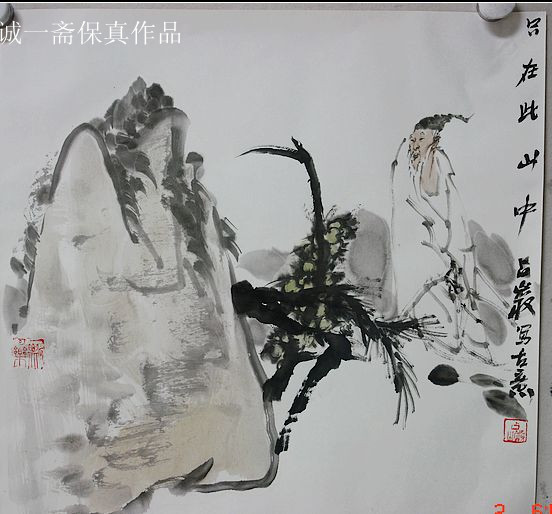 诚一斋保真作品
只在此山中
吕岩写古意